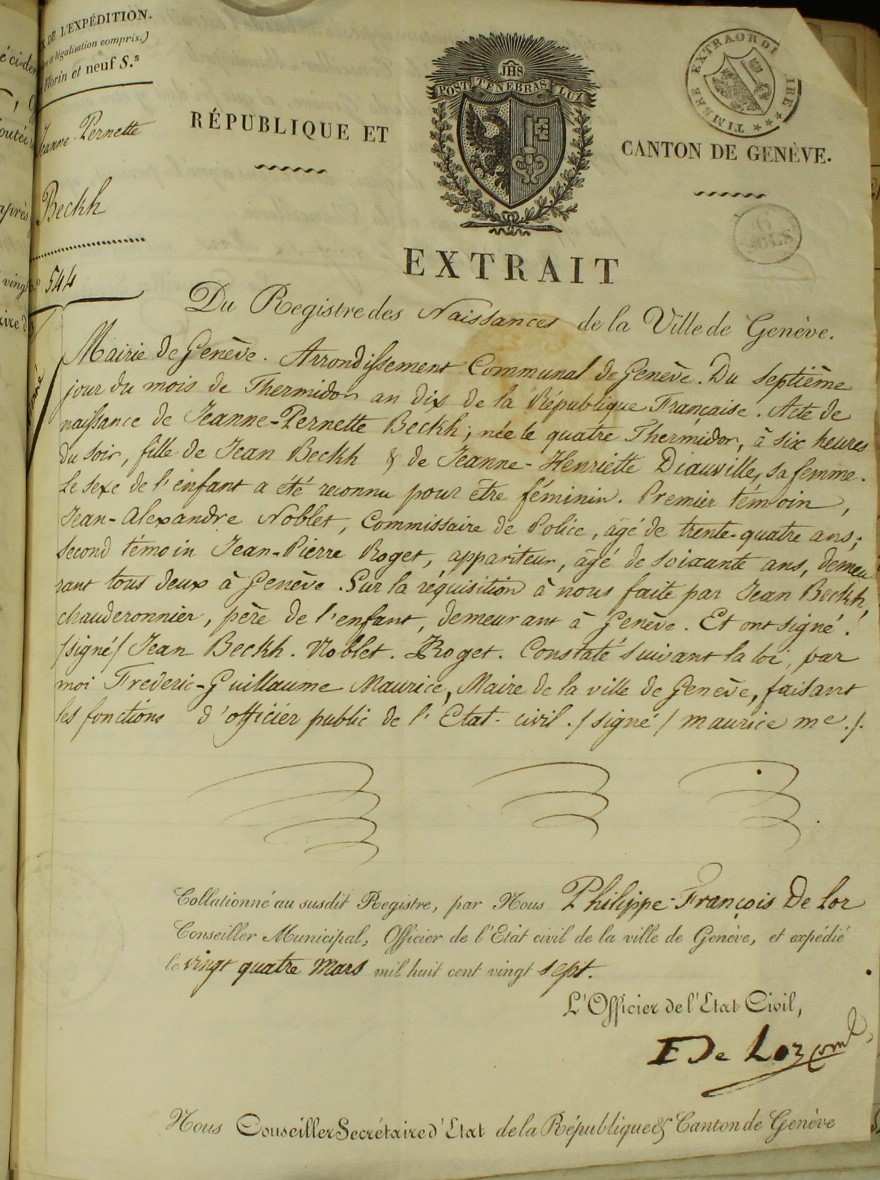 DE L'EXPÉDITION.
légalisation compris.)
florin et neuf S.s
Jeanne-Pernette
Beckh
544
JHS
POST TENEBRAS LUX
RÉPUBLIQUE ET
CANTON DE GENÈVE.
TIMBRE EXTRAORDI IRE
6
SOLS
EXTRAIT
Du Registre des Naissances de la Ville de Genève.
Mairie de Genève. Arrondissement Communal de Genève. Du Septième
jour du mois de Thermidor an dix de la République Française. Acte de
naissance de Jeanne-Pernette Beckh, née le quatre Thermidor, à six heures
du soir, fille de Jean Beckh & de Jeanne-Henriette Diauville, sa femme.
Le sexe de l'enfant a été reconnu pour être féminin. Premier témoin,
Jean-Alexandre Noblet, Commissaire de Police, âgé de trente-quatre ans;
second témoin Jean-Pierre Roget, appariteur, âgé de soixante ans, demeu
rant tous deux à Genève Sur la réquisition à nous faite par Jean Beckh,
chauderonnier, père de l'enfant, demeurant à Genève. Et ont signé.
/signé/ Jean Beckh. Noblet. Roget. Constaté suivant la loi, par
moi Frederic-Guillaume Maurice, Maire de la ville de Genève, faisant
les fonctions d'officier public de l'Etat-civil. /signé/ maurice me./.
Collationné au susdit Registre, par Nous Philippe François De Lor
Conseiller Municipal, Officier de l'Etat civil de la ville de Genève, et expédié
le vingt quatre Mars mil huit cent vingt sept.
L'Officier de l'Etat Civil,
De Lor
Nous Conseiller Secrétaire d'Etat de la République & Canton de Genève